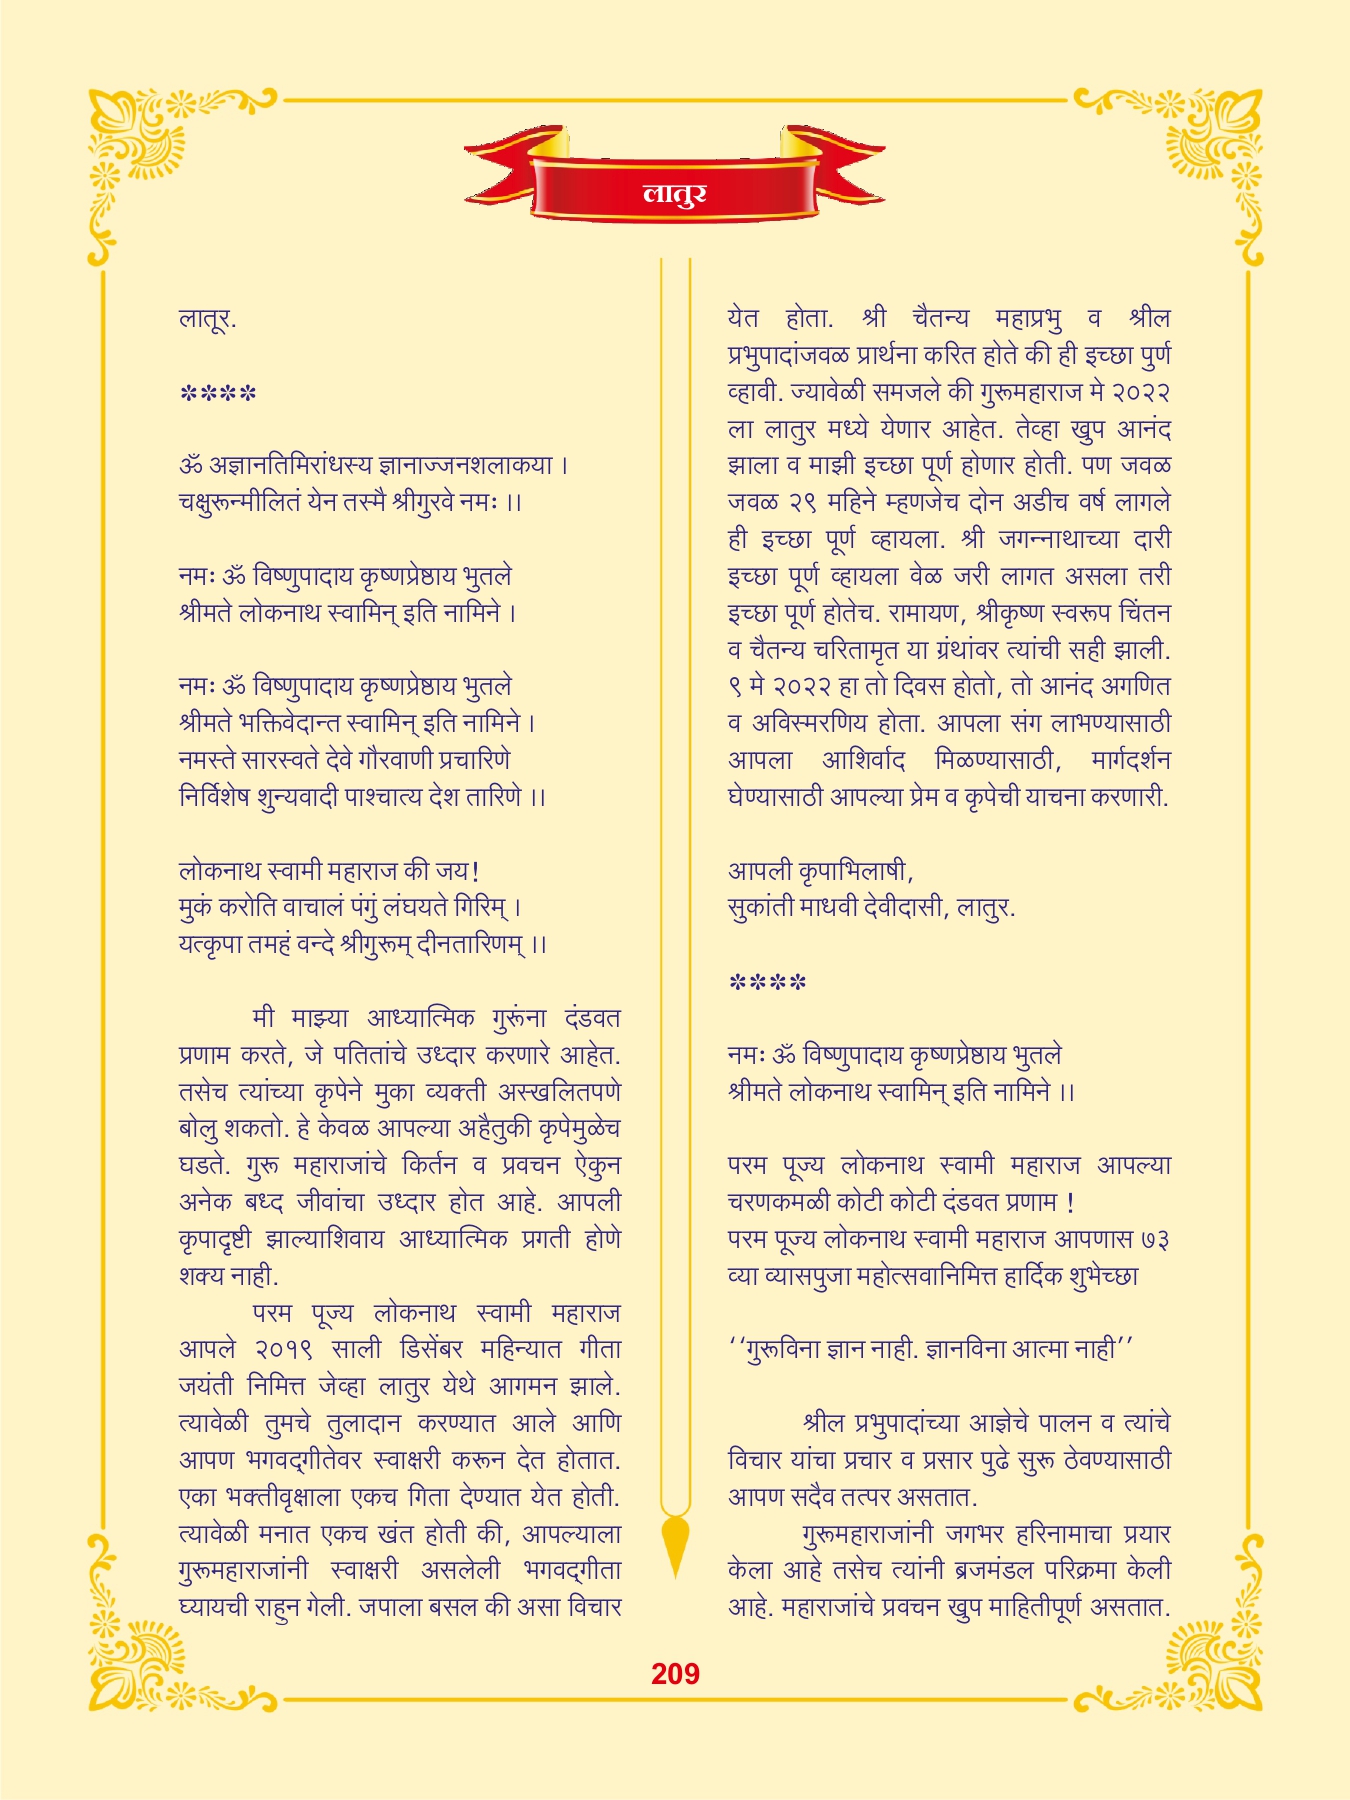 लातुर
लातूर.
****
ॐ अज्ञानतिमिरांधस्य ज्ञानाज्जनशलाकया ।
चक्षुरून्मीलितं येन तस्मै श्रीगुरवे नमः ।।
नमः ॐ विष्णुपादाय कृष्णप्रेष्ठाय भुतले
श्रीमते लोकनाथ स्वामिन् इति नामिने ।
नमः ॐ विष्णुपादाय कृष्णप्रेष्ठाय भुतले
श्रीमते भक्तिवेदान्त स्वामिन् इति नामिने ।
नमस्ते सारस्वते देवे गौरवाणी प्रचारिणे
निर्विशेष शुन्यवादी पाश्चात्य देश तारिणे ।।
लोकनाथ स्वामी महाराज की जय!
मुकं करोति वाचालं पंगुं लंघयते गिरिम् ।
यत्कृपा तमहं वन्दे श्रीगुरूम् दीनतारिणम् ।।
मी माझ्या आध्यात्मिक गुरूंना दंडवत
प्रणाम करते, जे पतितांचे उध्दार करणारे आहेत.
तसेच त्यांच्या कृपेने मुका व्यक्ती अस्खलितपणे
बोलु शकतो. हे केवळ आपल्या अहैतुकी कृपेमुळेच
घडते. गुरू महाराजांचे किर्तन व प्रवचन ऐकुन
अनेक बध्द जीवांचा उध्दार होत आहे. आपली
कृपादृष्टी झाल्याशिवाय आध्यात्मिक प्रगती होणे
शक्य नाही.
परम पूज्य लोकनाथ स्वामी महाराज
आपले २०१९ साली डिसेंबर महिन्यात गीता
जयंती निमित्त जेव्हा लातुर येथे आगमन झाले.
त्यावेळी तुमचे तुलादान करण्यात आले आणि
आपण भगवद्‌गीतेवर स्वाक्षरी करून देत होतात.
एका भक्तीवृक्षाला एकच गिता देण्यात येत होती.
त्यावेळी मनात एकच खंत होती की, आपल्याला
गुरूमहाराजांनी स्वाक्षरी असलेली भगवद्‌गीता
घ्यायची राहुन गेली. जपाला बसल की असा विचार
येत होता. श्री चैतन्य महाप्रभु व श्रील
प्रभुपादांजवळ प्रार्थना करित होते की ही इच्छा पुर्ण
व्हावी. ज्यावेळी समजले की गुरूमहाराज मे २०२२
ला लातुर मध्ये येणार आहेत. तेव्हा खुप आनंद
झाला व माझी इच्छा पूर्ण होणार होती. पण जवळ
जवळ २९ महिने म्हणजेच दोन अडीच वर्ष लागले
ही इच्छा पूर्ण व्हायला. श्री जगन्नाथाच्या दारी
इच्छा पूर्ण व्हायला वेळ जरी लागत असला तरी
इच्छा पूर्ण होतेच. रामायण, श्रीकृष्ण स्वरूप चिंतन
व चैतन्य चरितामृत या ग्रंथांवर त्यांची सही झाली.
९ मे २०२२ हा तो दिवस होतो, तो आनंद अगणित
व अविस्मरणिय होता. आपला संग लाभण्यासाठी
आपला आशिर्वाद मिळण्यासाठी, मार्गदर्शन
घेण्यासाठी आपल्या प्रेम व कृपेची याचना करणारी.
आपली कृपाभिलाषी,
सुकांती माधवी देवीदासी, लातुर.
****
नमः ॐ विष्णुपादाय कृष्णप्रेष्ठाय भुतले
श्रीमते लोकनाथ स्वामिन् इति नामिने ।।
परम पूज्य लोकनाथ स्वामी महाराज आपल्या
चरणकमळी कोटी कोटी दंडवत प्रणाम !
परम पूज्य लोकनाथ स्वामी महाराज आपणास ७३
व्या व्यासपुजा महोत्सवानिमित्त हार्दिक शुभेच्छा
‘‘गुरूविना ज्ञान नाही. ज्ञानविना आत्मा नाही’’
श्रील प्रभुपादांच्या आज्ञेचे पालन व त्यांचे
विचार यांचा प्रचार व प्रसार पुढे सुरू ठेवण्यासाठी
आपण सदैव तत्पर असतात.
गुरूमहाराजांनी जगभर हरिनामाचा प्रयार
केला आहे तसेच त्यांनी ब्रजमंडल परिक्रमा केली
आहे. महाराजांचे प्रवचन खुप माहितीपूर्ण असतात.
209